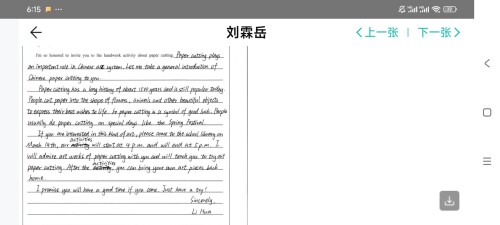 6:15
刘霖岳
上一张 | 下一张
I'm so honored to invite you to the handwork activity about paper cutting. Paper cutting plays
an important role in Chinese art system. Let me take a general introduction of
Chinese paper cutting to you.
Paper cutting has a long history of about 1500 years and is still popular today.
People cut paper into the shape of flowers, animals and other beautiful objects
to express their best wishes to life. So paper cutting is a symbol of good luck. People
usually do paper cutting on special days like the Spring Festival.
If you are interested in this kind of art, please come to the school library on
March 14th, our activities will start at 4 p.m. and will end at 5 p.m. I
will admire art works of paper cutting with you and will teach you to try art
paper cutting. After the activities, you can bring your own art pieces back
home.
I promise you will have a good time if you come. Just have a try!
Sincerely,
Li Hua